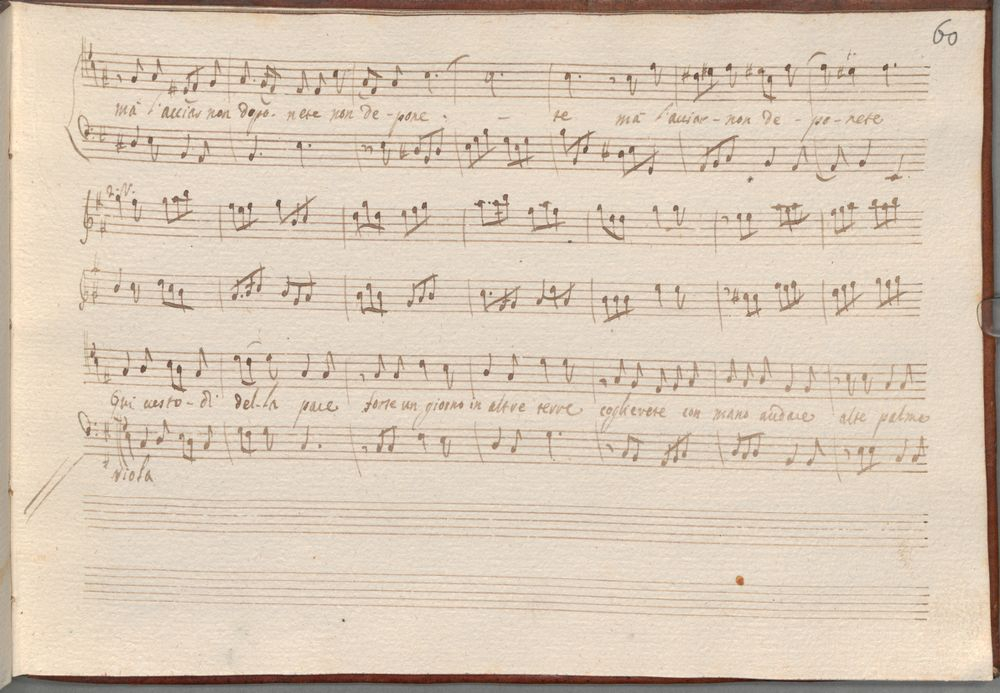 60
mà l'acciar non depo- nete non de - pone - - te mà l'acciar - non de - po - nete
2. V.
custo - di del - la pace forse un giorno in altre terre coglierete con mano audace alte palme
Viola